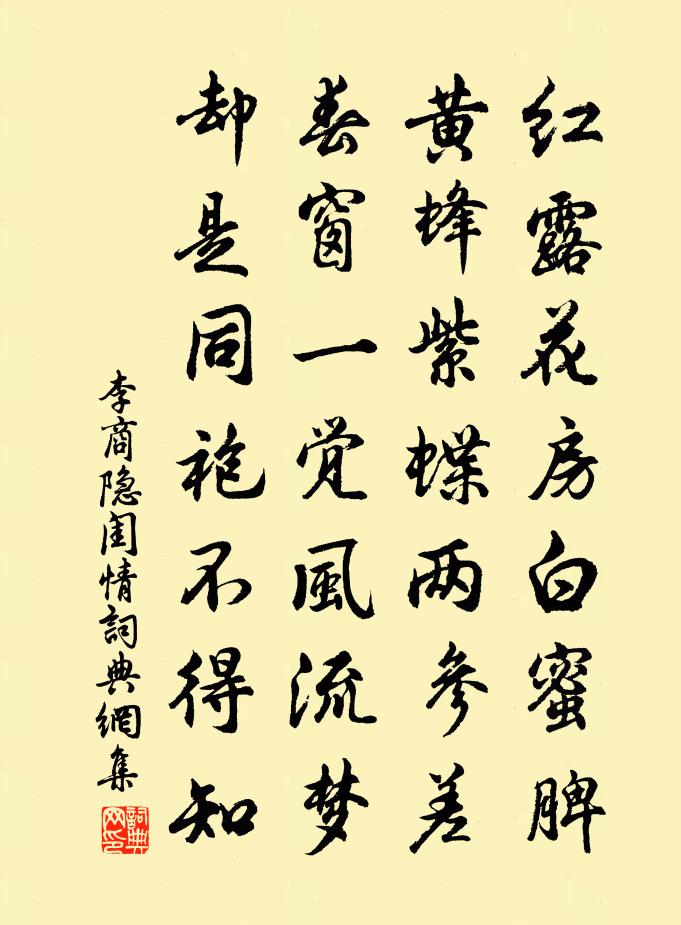 红露花房白蜜脾
黄蜂紫蝶两参差
春窗一觉風流梦
却是同袍不得知
李商隐闺情詞典網集
詞典网印